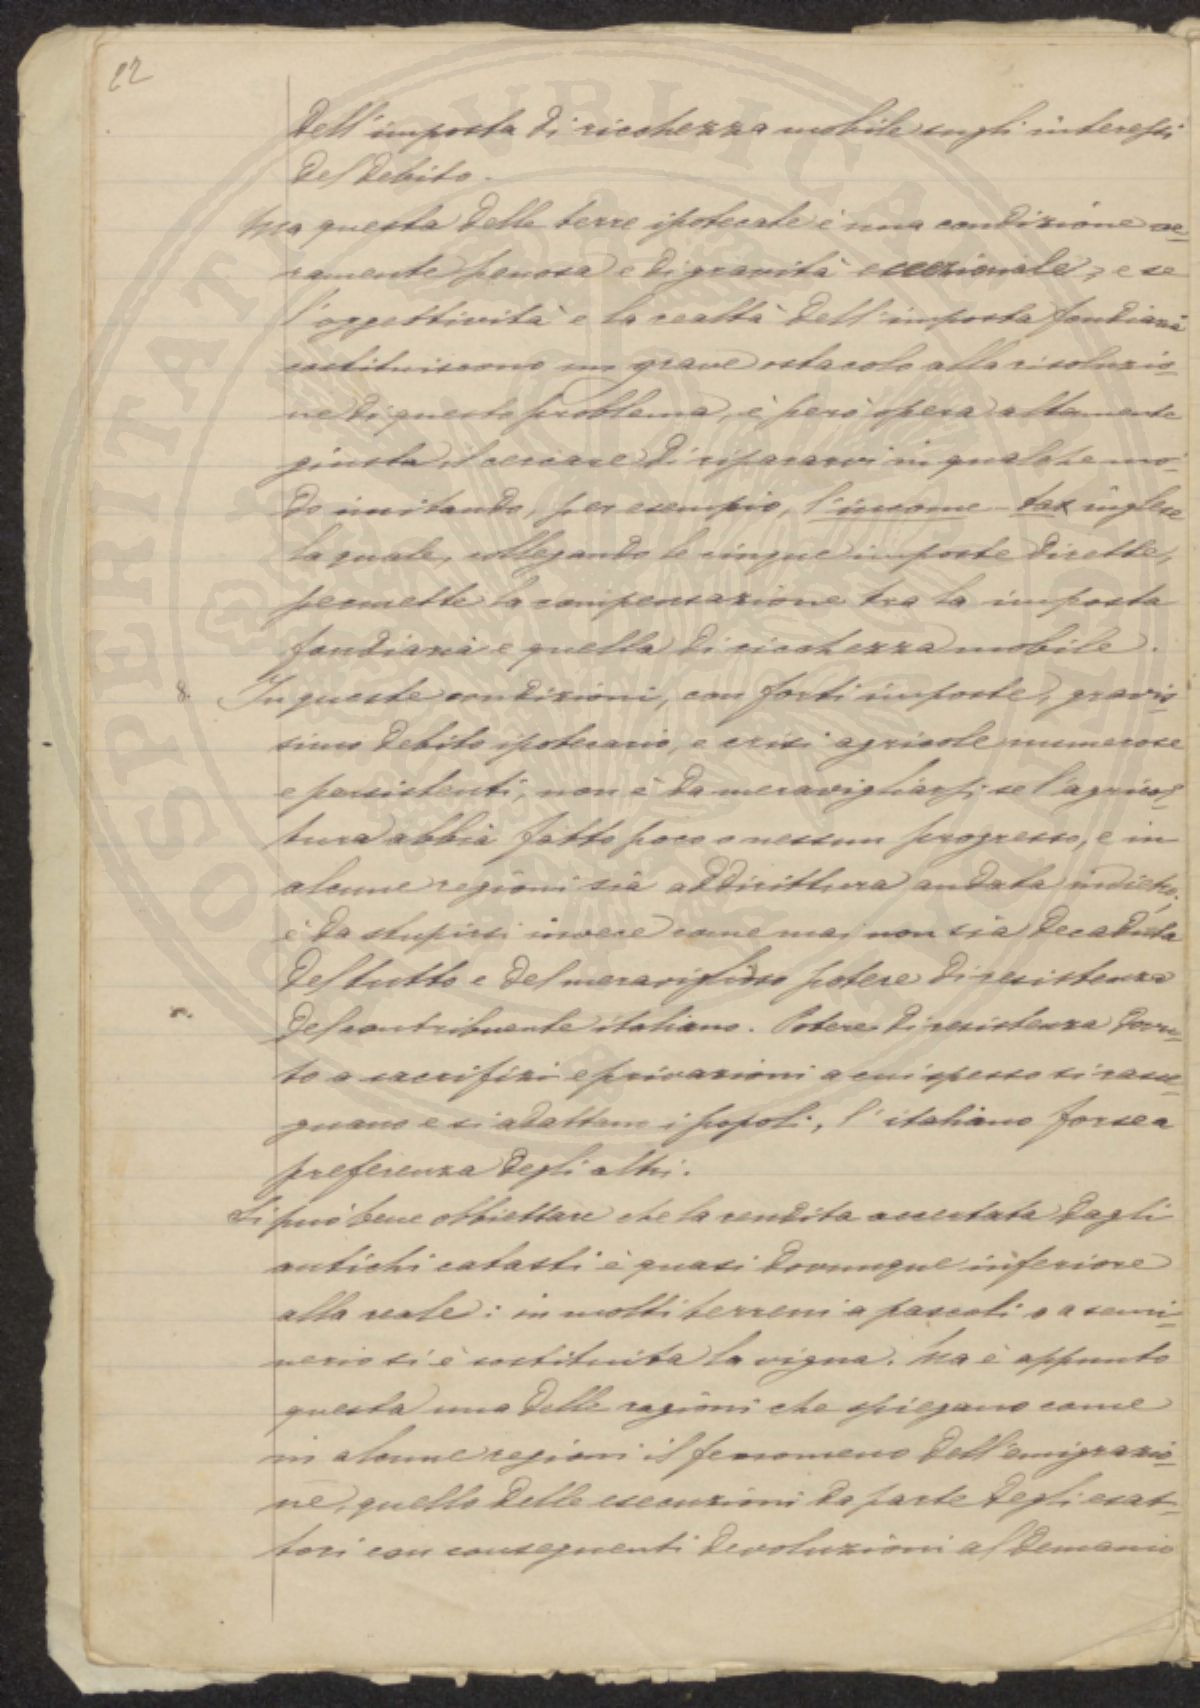 22
dell'imposta di ricchezza mobile sugli interessi
del debito.
Ma questa delle terre ipotecate è una condizione ve-
ramente penosa e di gravità eccezionale, e se
l'oggettività e la realtà dell'imposta fondiaria
costituiscono un grave ostacolo alla risoluzio-
ne di questo problema, è però opera altamente
giusta il cercare di ripararvi in qualche mo-
do imitando, per esempio, l'income-tax inglese
la quale, collegando le cinque imposte dirette,
permette la compensazione tra la imposta
fondiaria e quella di ricchezza mobile.
8. In queste condizioni, con forti imposte, gravis-
simo debito ipotecario, e crisi agricole numerose
e persistenti, non è da meravigliarsi se l'agricol-
tura abbia fatto poco o nessun progresso, e in
alcune regioni sia addirittura andata indietro;
è da stupirsi invece come mai non sia decaduta
del tutto e del meraviglioso potere di resistenza
del contribuente italiano. Potere di resistenza dovu-
to a sacrifizi e privazioni a cui spesso si rasse-
gnano e si adattano i popoli, l'italiano forse a
preferenza degli altri.
Si può bene obbiettare che la rendita accertata dagli
antichi catasti è quasi dovunque inferiore
alla reale: in molti terreni a pascoli o a semi-
nerio si è sostituita la vigna. Ma è appunto
questa una delle ragioni che spiegano come
in alcune regioni il fenomeno dell'emigrazio-
ne, quello delle esecuzioni da parte degli esat-
tori con conseguenti devoluzioni al demanio
PROSPERITATI PVBLICAE